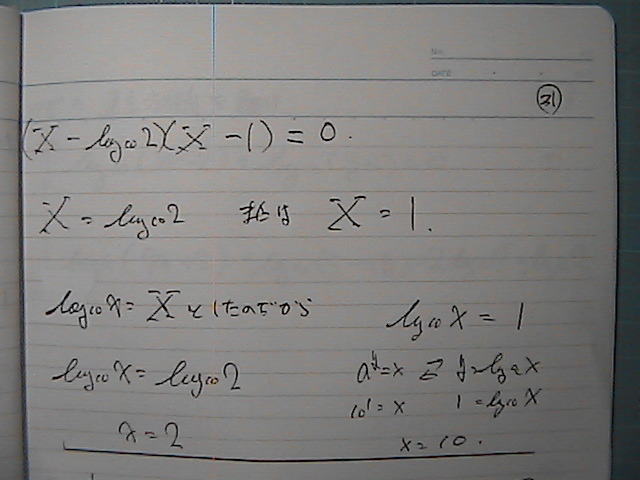 No.
DATE
㉛
(X - log₁₀2)(X - 1) = 0.
X = log₁₀2 または X = 1.
log₁₀x = X としたのですから
log₁₀x = 1
log₁₀x = log₁₀2
a^y = x ⇄ y = log_a x
10¹ = x 1 = log₁₀x
x = 2
x = 10.